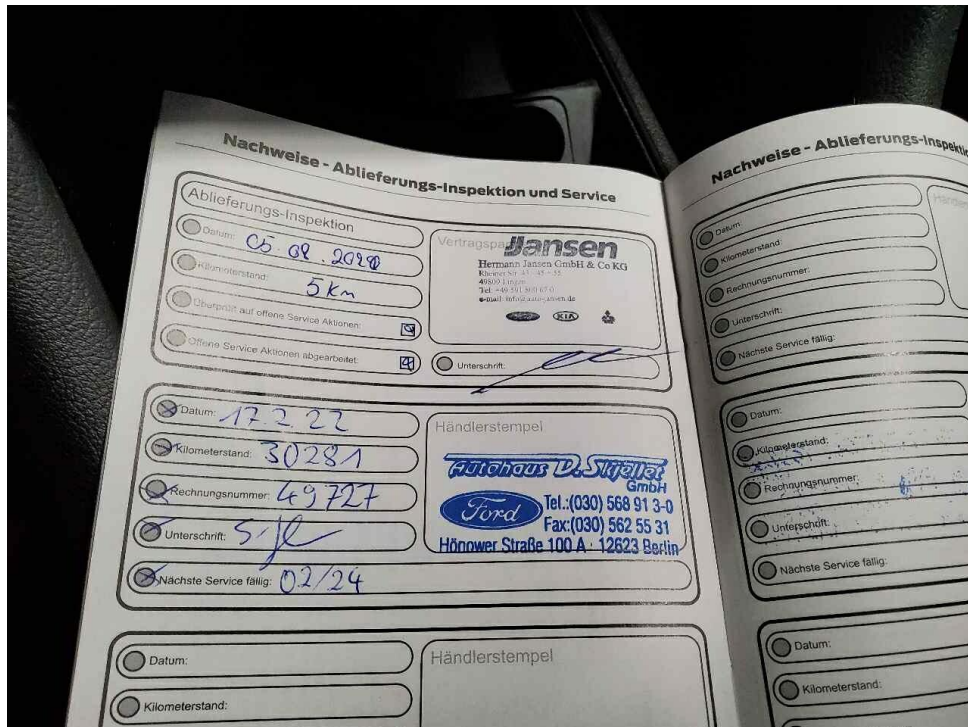 Nachweise - Ablieferungs-Inspektion und Service
Ablieferungs-Inspektion
Datum: 05.02.2020
Kilometerstand: 5 km
Überprüft auf offene Service Aktionen:
Offene Service Aktionen abgearbeitet:
Jansen
Hermann Jansen GmbH & Co KG
49809 Lingen
KIA
Unterschrift:
Datum: 17.2.22
Kilometerstand: 30281
Rechnungsnummer: 49727
Unterschrift:
Nächste Service fällig: 02/24
Händlerstempel
Autohaus D.
GmbH
Ford
Tel.:(030) 568 91 3-0
Fax:(030) 562 55 31
Hönower Straße 100 A · 12623 Berlin
Datum:
Kilometerstand:
Händlerstempel
Nachweise - Ablieferungs-Inspektio
Datum:
Kilometerstand:
Rechnungsnummer:
Unterschrift:
Nächste Service fällig:
Datum:
Kilometerstand:
Rechnungsnummer:
Unterschrift:
Nächste Service fällig:
Datum:
Kilometerstand: